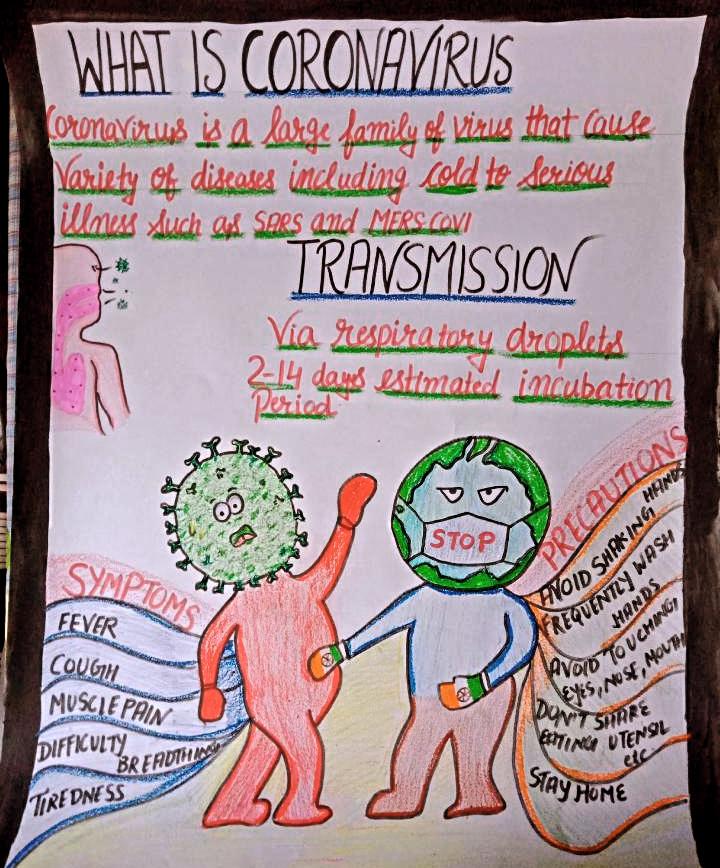 WHAT IS CORONAVIRUS
Coronavirus is a large family of virus that cause
Variety of diseases including cold to Serious
illness Such as SARS and MERS COVI
TRANSMISSION
Via respiratory droplets
2-14 days estimated incubation
Period
STOP
SYMPTOMS
FEVER
COUGH
MUSCLE PAIN
DIFFICULTY
BREADTHING
TIREDNESS
PRECAUTIONS
AVOID SHAKING HANDS
FREQUENTLY WASH
HANDS
AVOID TOUCHING
EYES, NOSE, MOUTH
DON'T SHARE
EATING UTENSIL
etc
STAY HOME